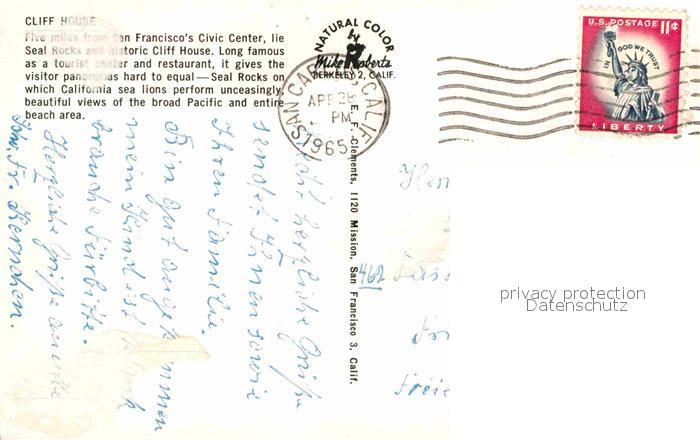 CLIFF HOUSE
Five miles from San Francisco's Civic Center, lie
Seal Rocks and historic Cliff House. Long famous
as a tourist center and restaurant, it gives the
visitor panoramas hard to equal—Seal Rocks on
which California sea lions perform unceasingly,
beautiful views of the broad Pacific and entire
beach area.
NATURAL COLOR
by
Mike Roberts
BERKELEY 2, CALIF.
SAN CA CALIF
APR 28
PM
1965
U.S. POSTAGE 11¢
IN GOD WE TRUST
LIBERTY
E. F. Clements, 1120 Mission, San Francisco 3, Calif.
herzliche Grüße
sendet Ihnen sowie
Ihrer Familie.
Bin gut angekommen
mein Kind ist
brauche Fürbitte.
Herzliche Grüße
Fr. Kernchen.
462
privacy protection
Datenschutz